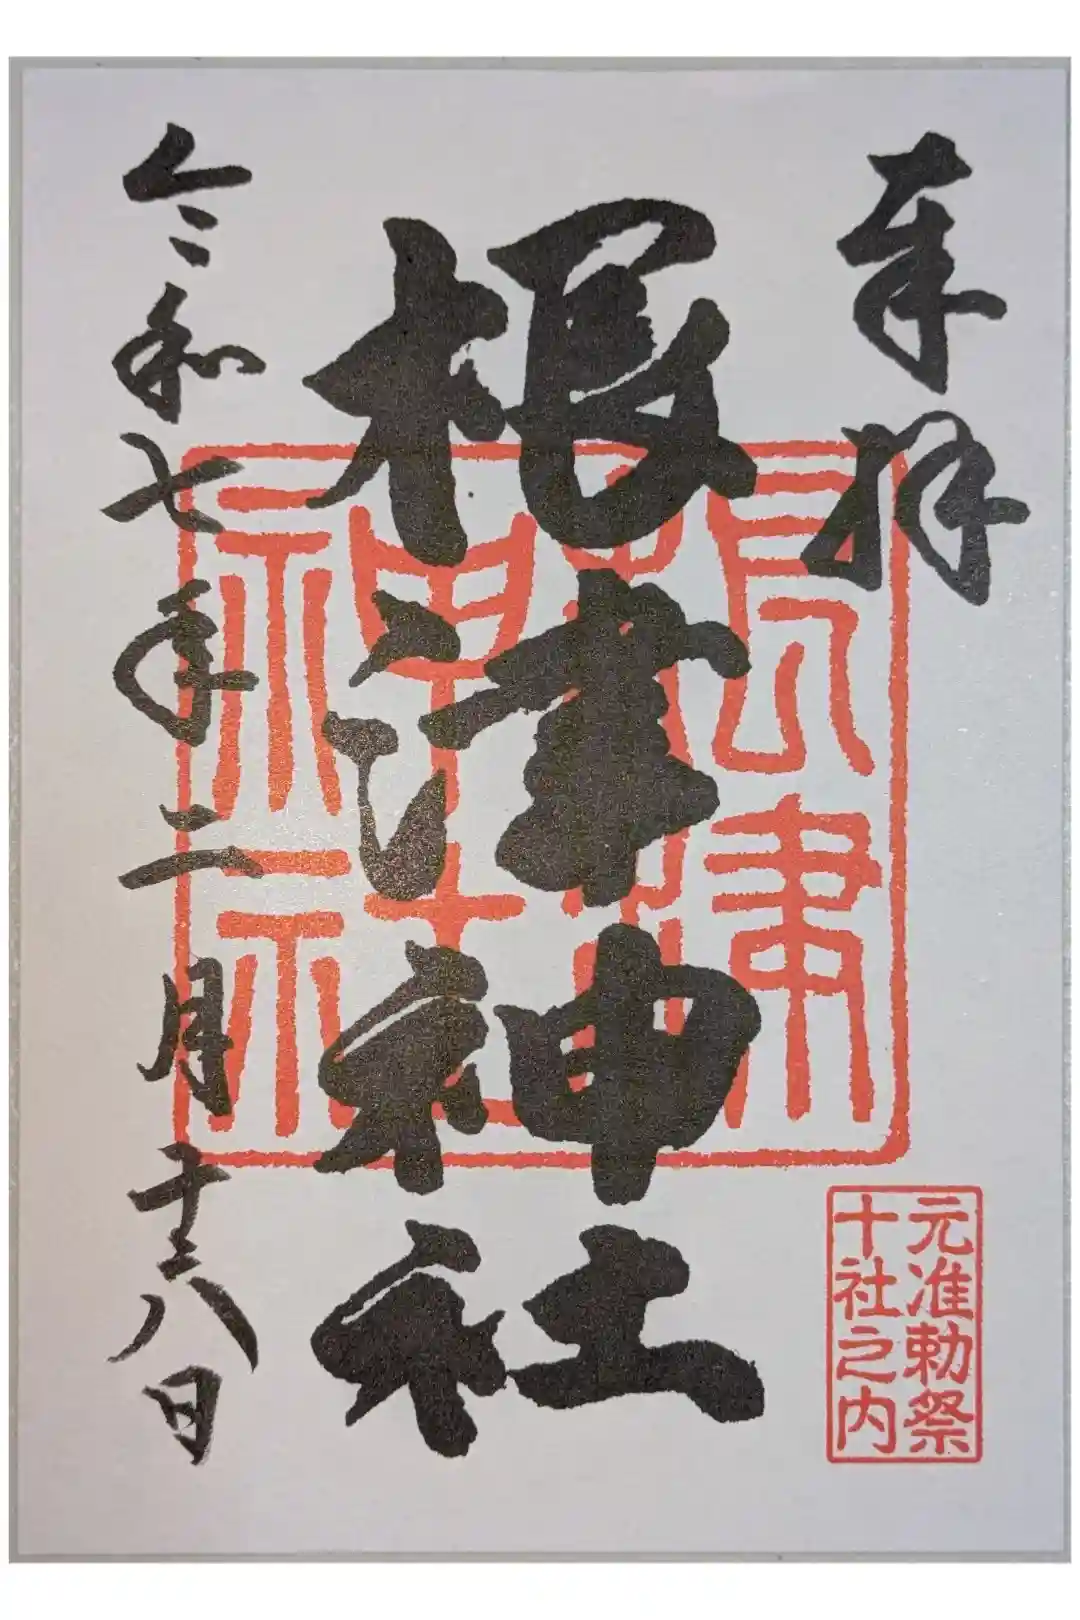 奉拝
根津神社
令和七年二月十六日
根津
神社
元准勅祭
十社之内